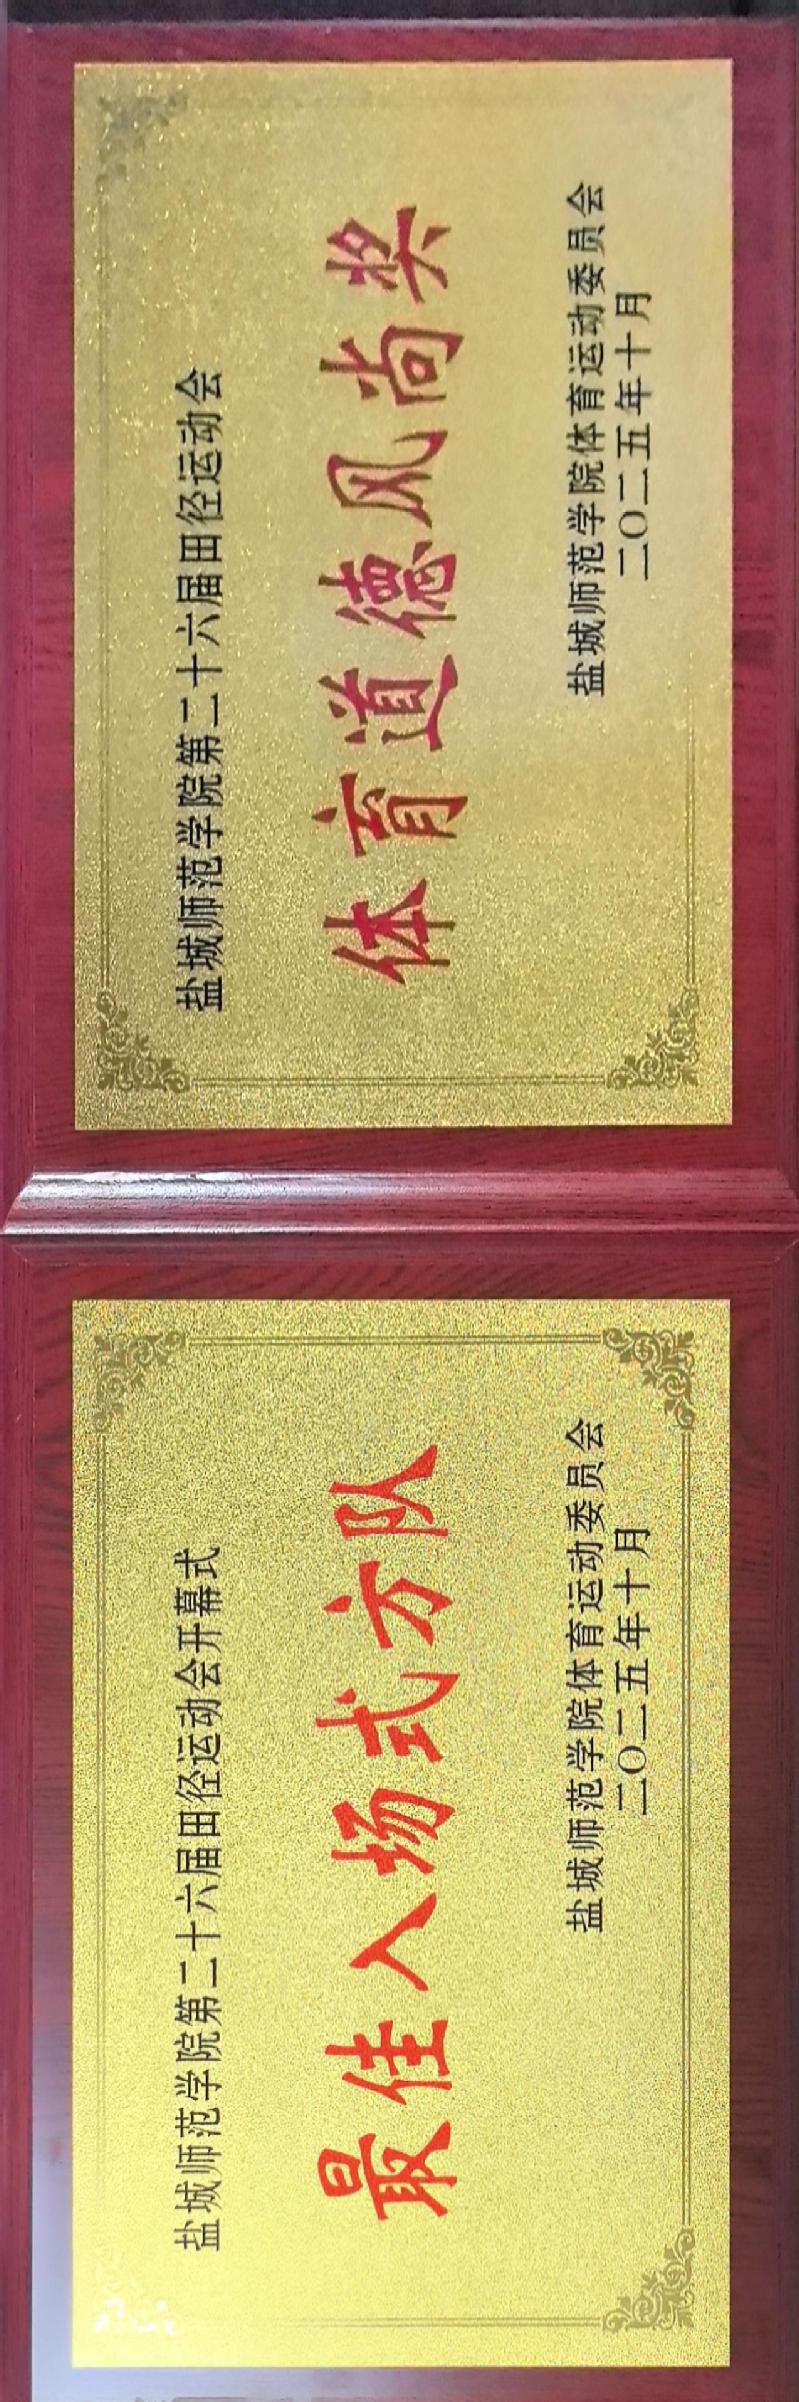 盐城师范学院第二十六届田径运动会开幕式
最佳入场式方队
盐城师范学院体育运动委员会
二〇二五年十月
盐城师范学院第二十六届田径运动会
体育道德风尚奖
盐城师范学院体育运动委员会
二〇二五年十月